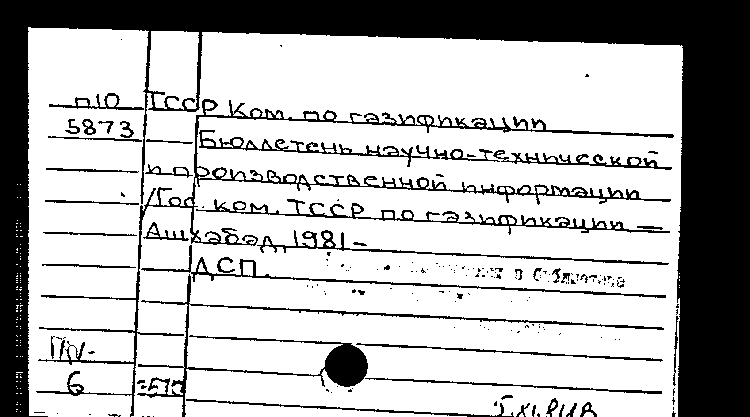 п10 ТССР Ком. по газификации
5873 Бюллетень научно-технической
и производственной информации
/Гос. ком. ТССР по газификации —
Ашхабад, 1981-
ДСП.
в библиотеке
6